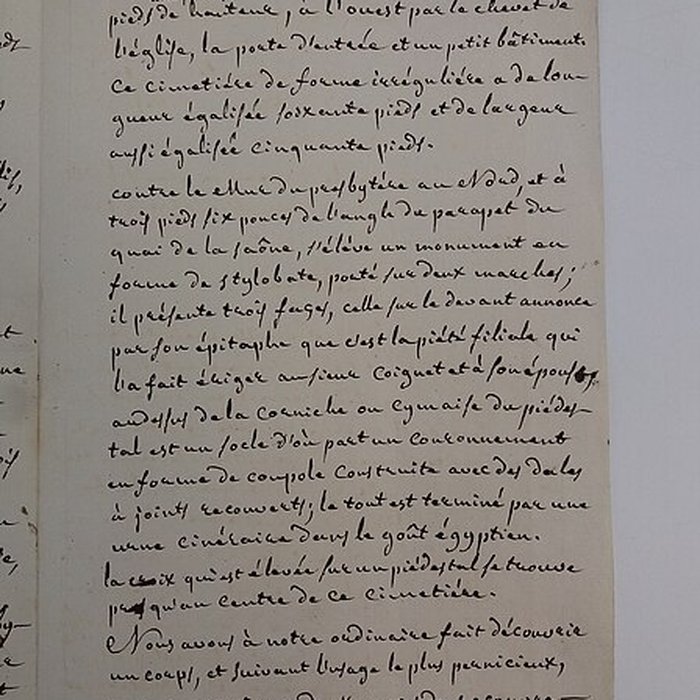 pieds de hauteur, à l'ouest par le chevet de
l'église, la porte d'entrée et un petit bâtiment.
ce cimetiére de forme irréguliére a de lon-
gueur égalisée soixante pieds et de largeur
aussi égalisée cinquante pieds.
contre le Mur du presbytére au Nord, et à
trois pieds six pouces de l'angle du parapet du
quai de la saône, s'éléve un monument en
forme de stylobate, porté sur deux marches;
il présente trois faces, celle sur le devant annonce
par son épitaphe que c'est la piété filiale qui
l'a fait ériger au sieur Coignet et à son épouse,
au dessus de la corniche ou cymaise du piédes-
tal est un socle d'où part un couronnement
en forme de coupole construite avec des dales
à joints recouverts; le tout est terminé par une
urne cinéraire dans le goût égyptien.
la croix qui est élevée sur un piédestal se trouve
presqu'au centre de ce cimetiére.
Nous avons à notre ordinaire fait découvrir
un corps, et suivant l'usage le plus pernicieux,